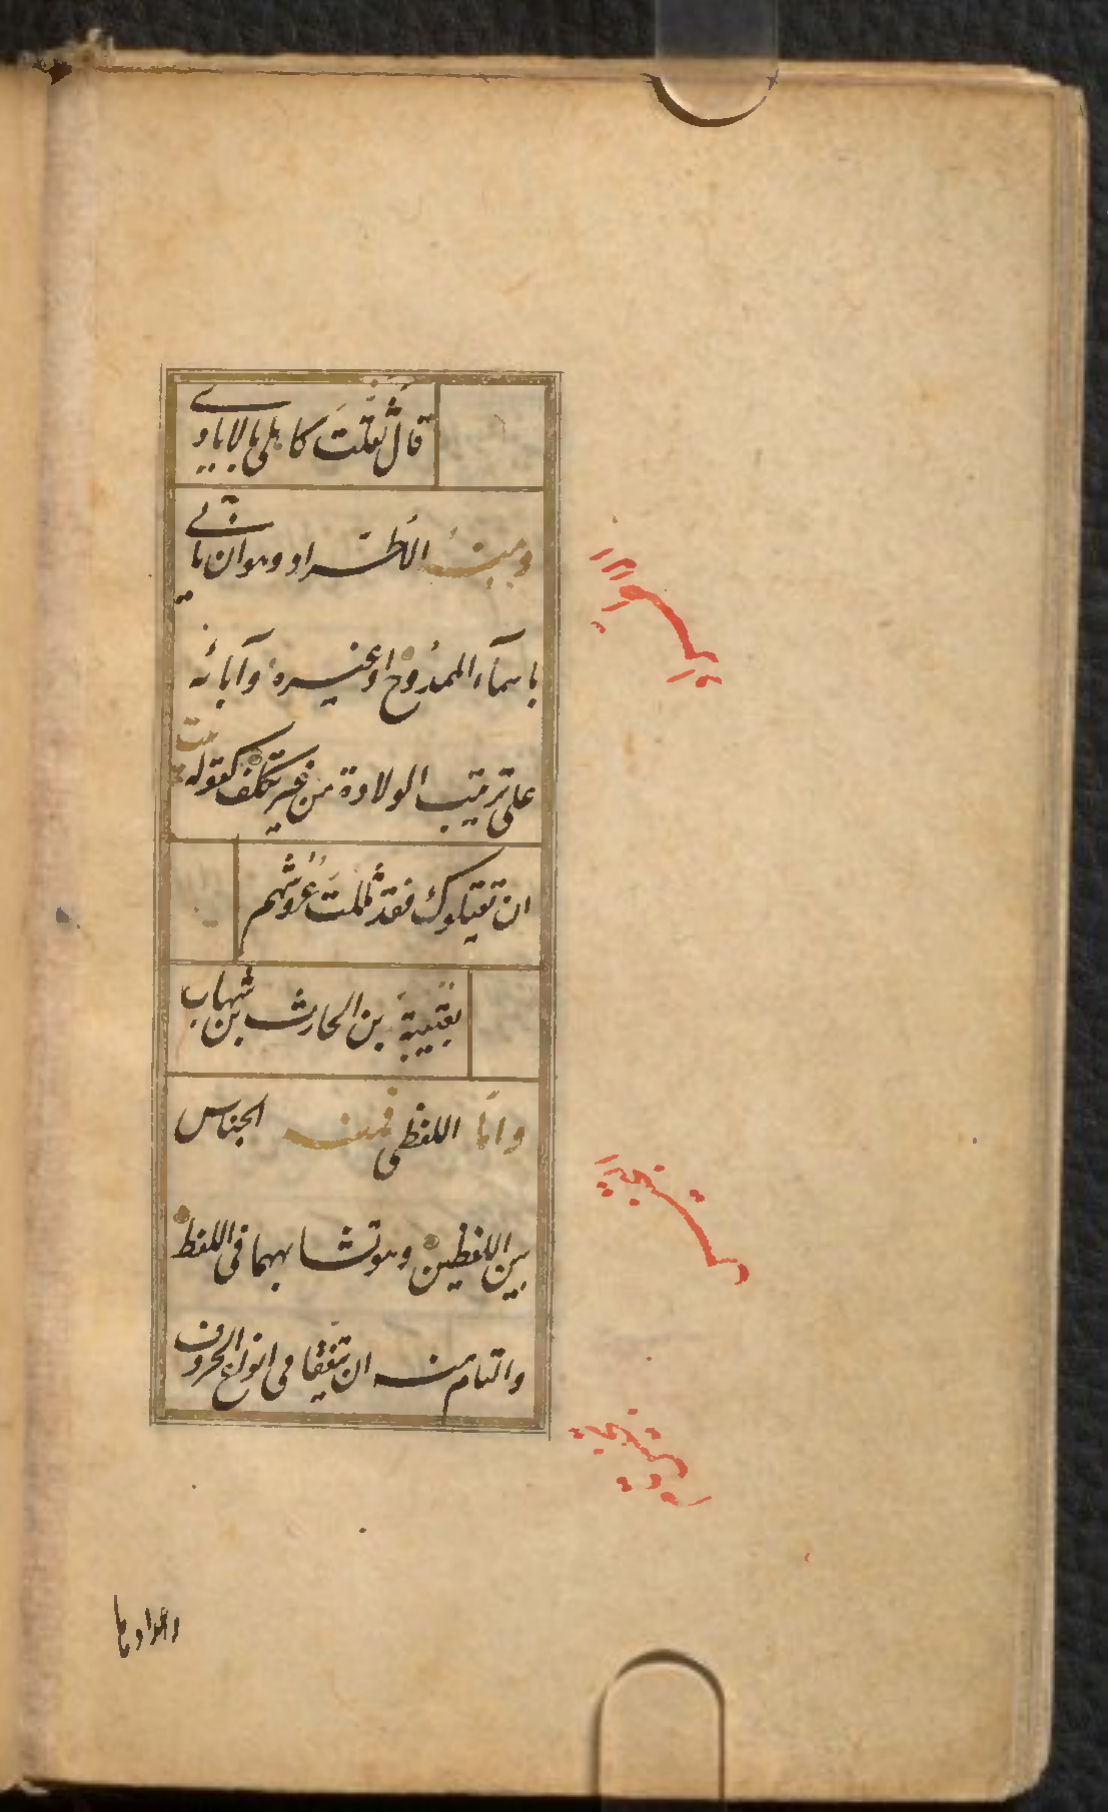 قال ثقّلتَ كاهلى بالايادى
ومنهُ الاطّراد وهو ان ياتى
باسمآء الممدُوح او غيره وآبائه
على ترتيب الولادة من غير تكلّف كقوله
ان تقتلوك فقد ثَللتَ عُروشهم
بعُتيبةَ بن الحارث بن شهاب
وامّا اللفظى فمنه الجناس
بين اللفظين وهو تشابههما فى اللفظ
والتام منه ان يتّفقا فى انواع الحروف
واعدادها